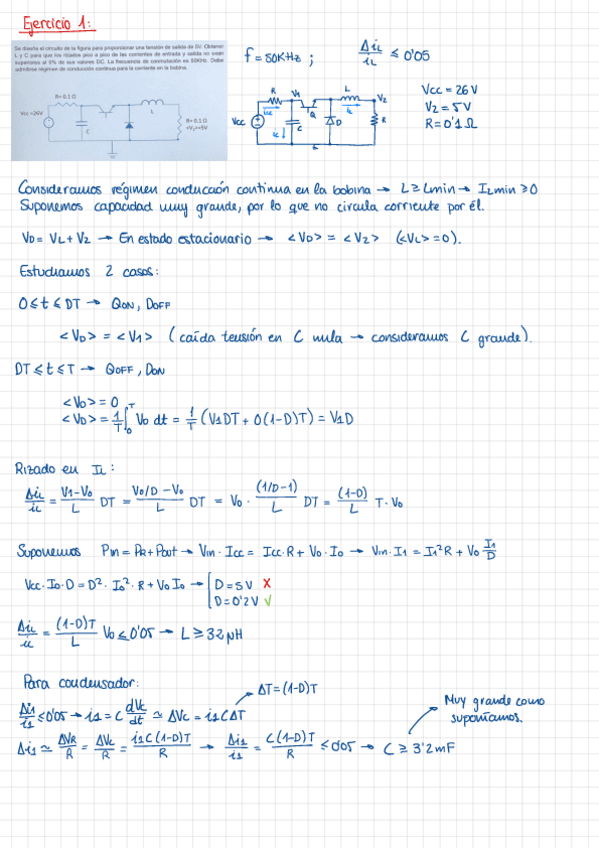 Ejercicio 1:
Se diseña el circuito de la figura para proporcionar una tensión de salida de 5V. Obtener
L y C para que los rizados pico a pico de las corrientes de entrada y salida no sean
superiores al 5% de sus valores DC. La frecuencia de conmutación es 50KHz. Debe
admitirse régimen de conducción continua para la corriente en la bobina.
R= 0.1 Ω
Vcc =26V
C
L
R= 0.1 Ω
<V₂>=5V
f = 50KHz ; ΔiL/iL ≤ 0'05
R V1 L V2
Vcc Q C D R
Vcc = 26 V
V2 = 5V
R = 0'1 Ω
Consideramos régimen conducción continua en la bobina → L ≥ Lmin → ILmin ≥ 0
Suponemos capacidad muy grande, por lo que no circula corriente por él.
VD = VL + V2 → En estado estacionario → <VD> = <V2> (<VL> = 0).
Estudiamos 2 casos:
0 ≤ t ≤ DT → QON, DOFF
<VD> = <V1> (caída tensión en C nula → consideramos C grande).
DT ≤ t ≤ T → QOFF, DON
<VD> = 0
<VD> = 1/T ∫₀ᵀ VD dt = 1/T (V1DT + 0(1-D)T) = V1D
Rizado en IL:
ΔiL/iL = (V1-V0)/L DT = (V0/D - V0)/L DT = V0 · (1/D-1)/L DT = (1-D)/L T · V0
Suponemos Pin = PR + Pout → Vin · Icc = Icc · R + V0 · I0 → Vin · I1 = I1² R + V0 I1/D
Vcc · I0 · D = D² · I0² · R + V0 I0 → D = 5 V X
D = 0'2 V ✓
ΔiL/iL = (1-D)T/L V0 ≤ 0'05 → L ≥ 32 μH
Para condensador:
ΔT = (1-D)T
Δi1/i1 ≤ 0'05 → i1 = C dVc/dt ≃ ΔVc = i1 C ΔT
Muy grande como
suponíamos.
Δi1 ≃ ΔVR/R = ΔVc/R = i1 C (1-D)T/R → Δi1/i1 = C(1-D)T/R ≤ 0'05 → C ≥ 3'2 mF